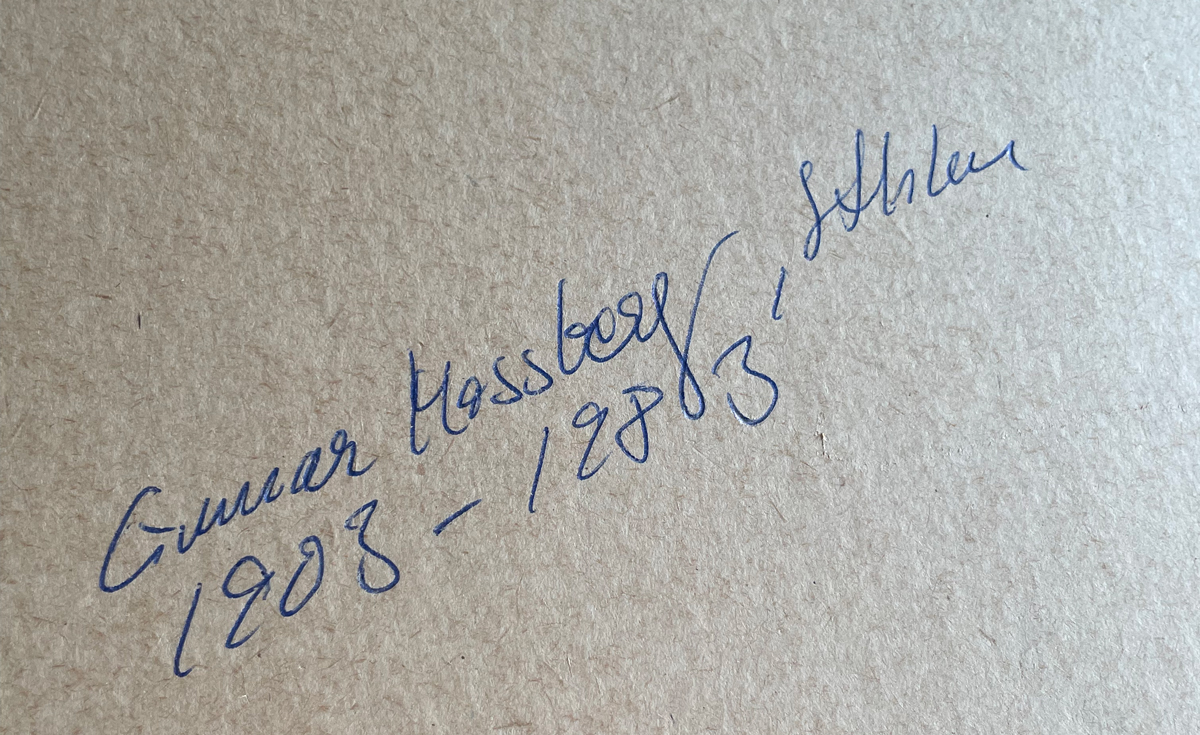 Gunnar , Sthlm
1903 - 1983